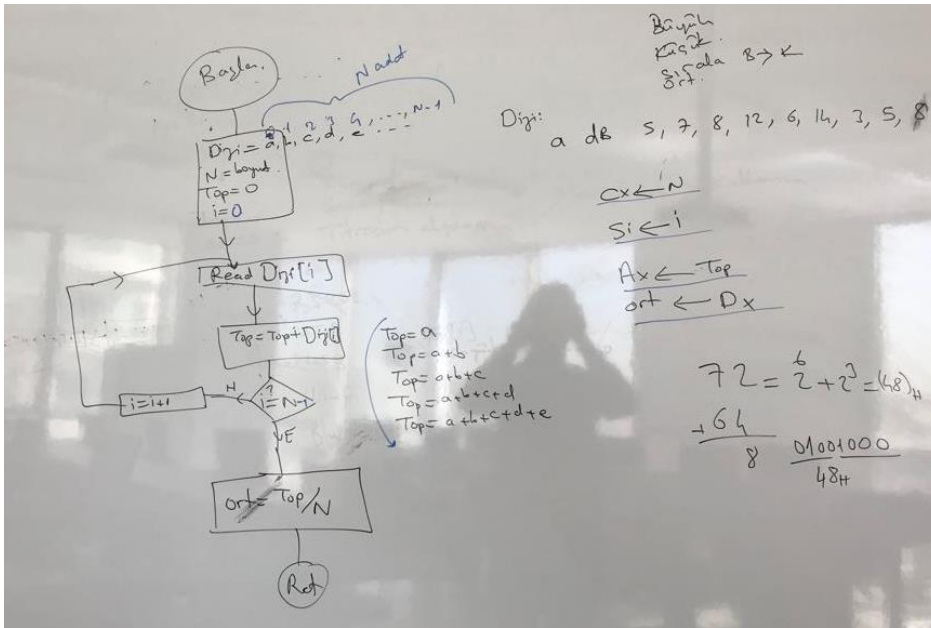 Başla.
N adet
0 1 2 3 4, ..., N-1
Dizi = a, b, c, d, e ...
N = boyut
Top = 0
i = 0
Read Dizi[i]
Top = Top + Dizi[i]
i = N-1
?
H
i = i+1
E
ort = Top/N
Ret
Top = a
Top = a+b
Top = a+b+c
Top = a+b+c+d
Top = a+b+c+d+e
Büyük
Küçük
Sırala B → K
Ort.
Dizi:
a dB 5, 7, 8, 12, 6, 14, 3, 5, 8
Cx ← N
Si ← i
Ax ← Top
ort ← Dx
72 = 2^6 + 2^3 = (48)H
-64
8
01001000
48H